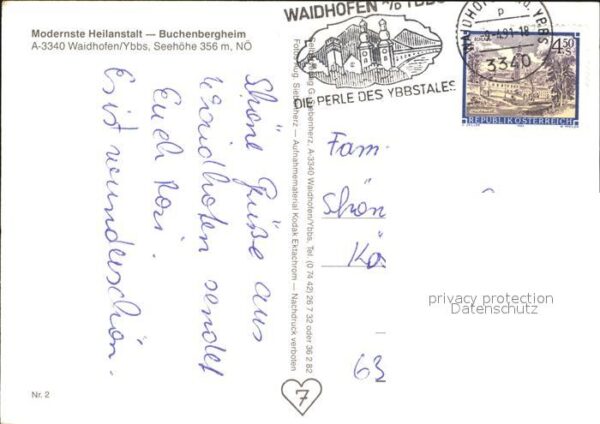 Modernste Heilanstalt — Buchenbergheim
A-3340 Waidhofen/Ybbs, Seehöhe 356 m, NÖ
Schöne Grüße aus
Waidhofen sendet
Euch Kori.
Es ist wunderschön.
WAIDHOFEN A/D YBBS
DIE PERLE DES YBBSTALES
YBBS
P
-9-4.91-18
3340
4.50
REPUBLIK ÖSTERREICH
A-3340 Waidhofen/Ybbs, Tel. (0 74 42) 26 7 32 oder 36 2 82
Aufnahmematerial Kodak Ektachrom — Nachdruck verboten
Fam.
Schön
Kö
63
privacy protection
Datenschutz
Nr. 2
7